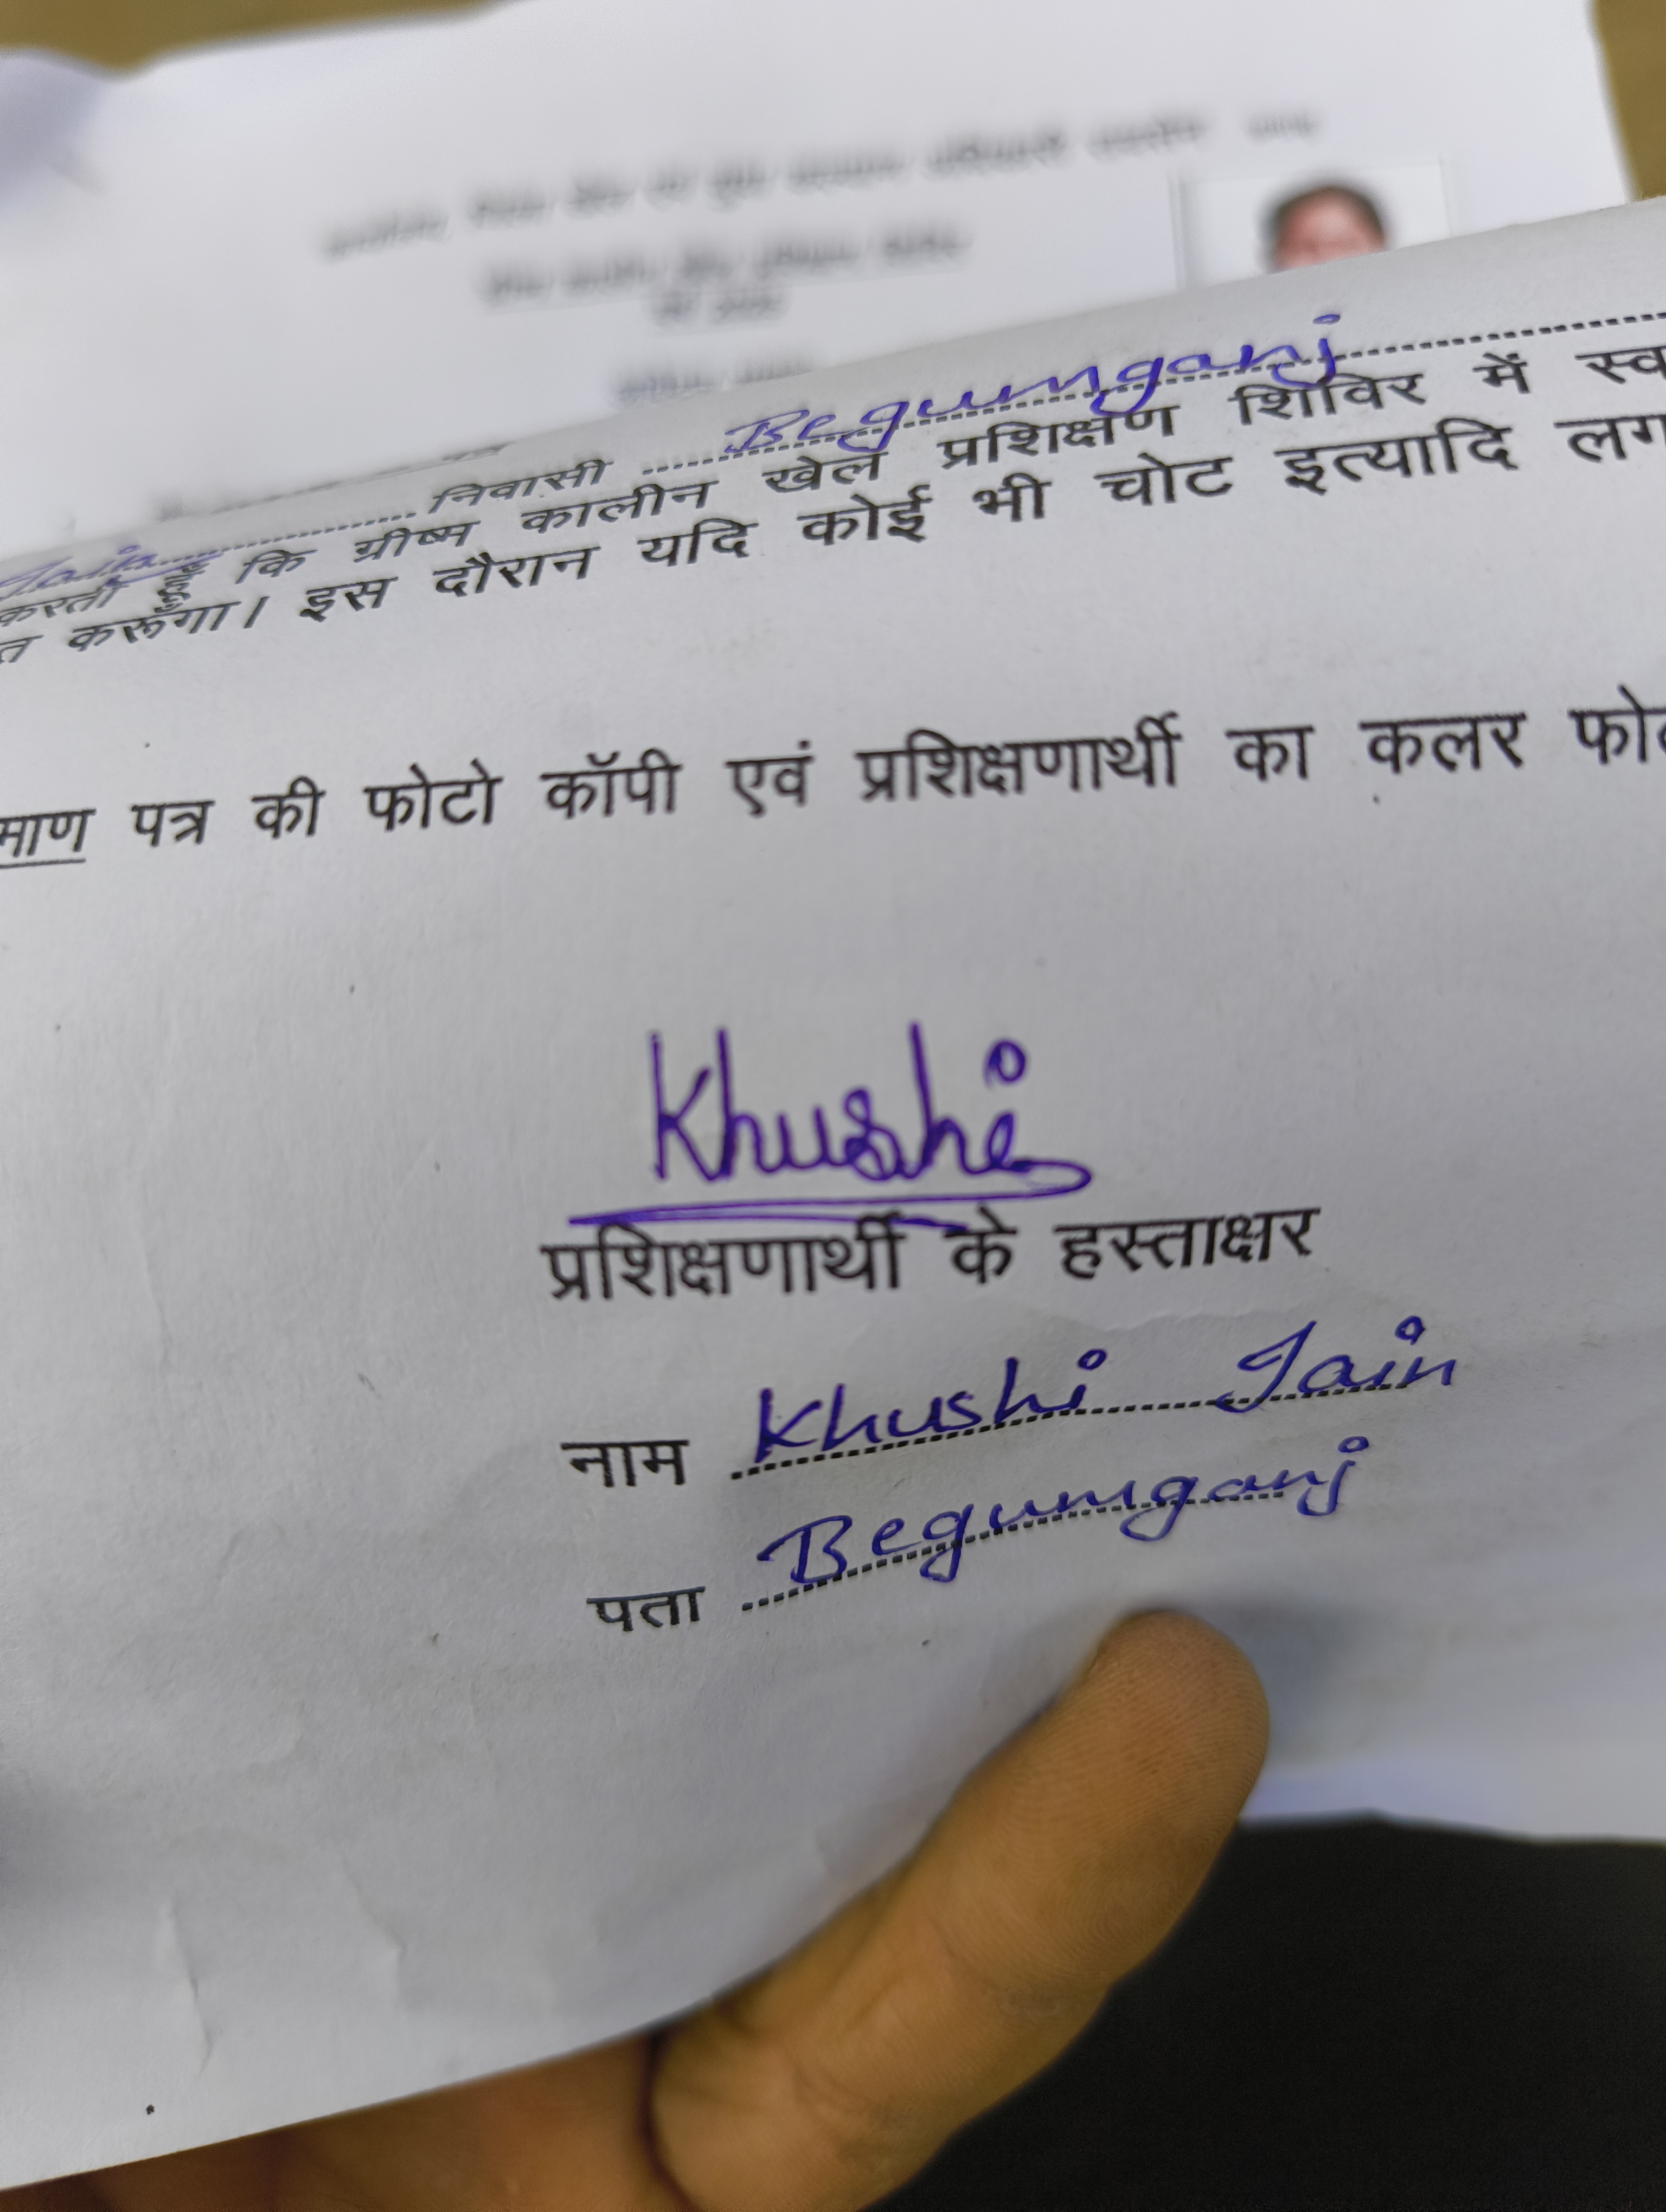 निवासी Begumganj
Jain
करता हूँ कि ग्रीष्म कालीन खेल प्रशिक्षण शिविर में स्व
त करूँगा। इस दौरान यदि कोई भी चोट इत्यादि लग
माण पत्र की फोटो कॉपी एवं प्रशिक्षणार्थी का कलर फो
Khushi
प्रशिक्षणार्थी के हस्ताक्षर
नाम Khushi Jain
पता Begumganj